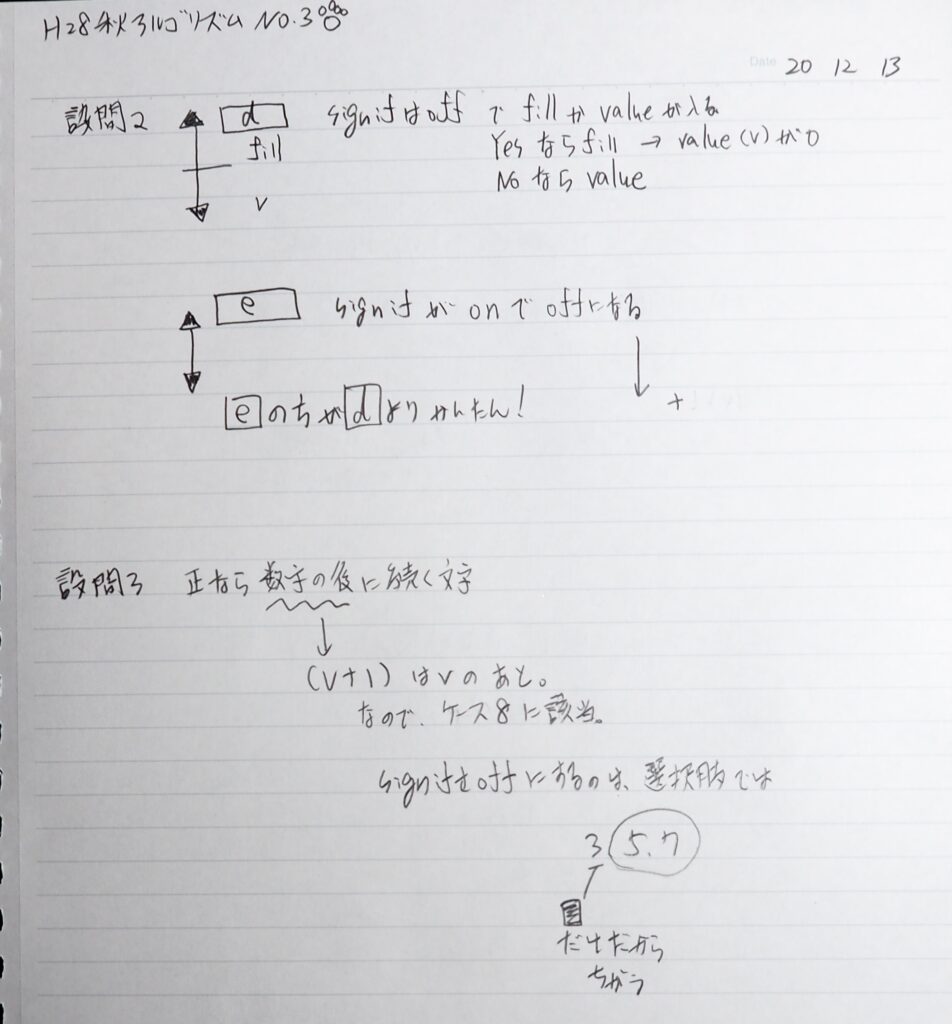 H28秋アルゴリズム No.3
Date 20 12 13
設問2 d signifはoff で fillか valueが入る
fill Yes ならfill → value (v) が0
No なら value
v
e signif が on で offになる
+
e のちが d よりかんたん!
設問3 正なら 数字の後に続く文字
(v+1) は v の あと。
なので、ケース8に該当。
signifをoffにするのは、選択肢では
3 5.7
だけだから
ちがう